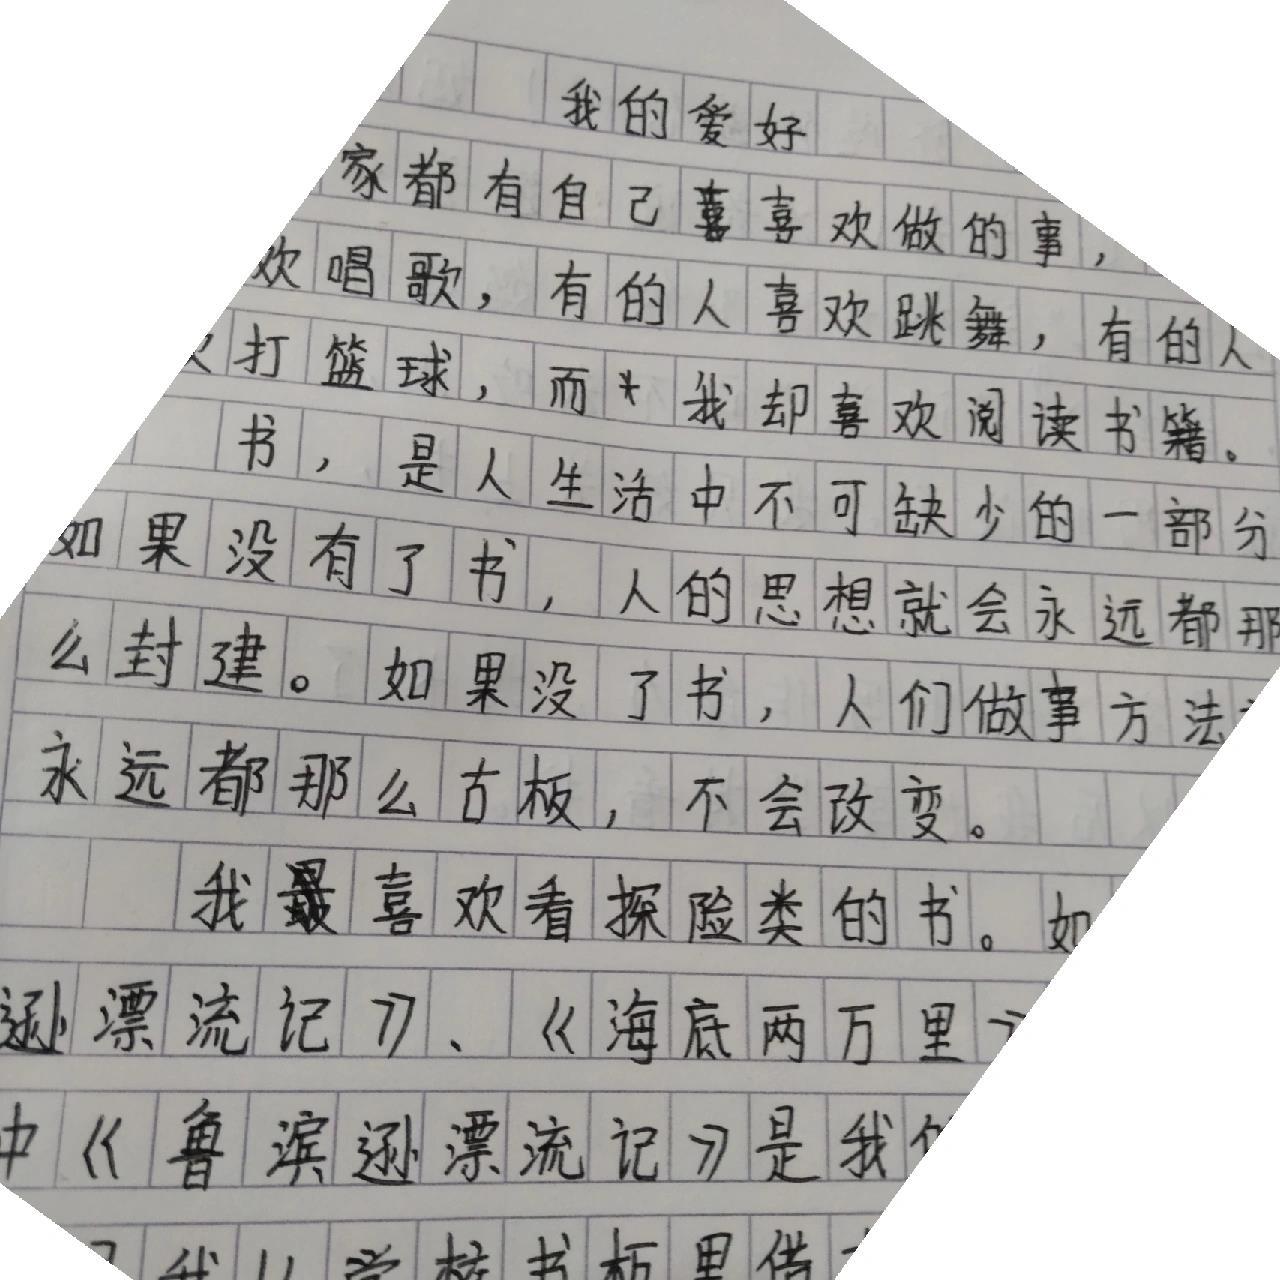 我的爱好
家都有自己喜喜欢做的事，
欢唱歌，有的人喜欢跳舞，有的人
打篮球，而*我却喜欢阅读书籍。
书，是人生活中不可缺少的一部分
如果没有了书，人的思想就会永远都那
么封建。如果没了书，人们做事方法
永远都那么古板，不会改变。
我最喜欢看探险类的书。如
逊漂流记》、《海底两万里》
中《鲁滨逊漂流记》是我
我从学校书柜里借